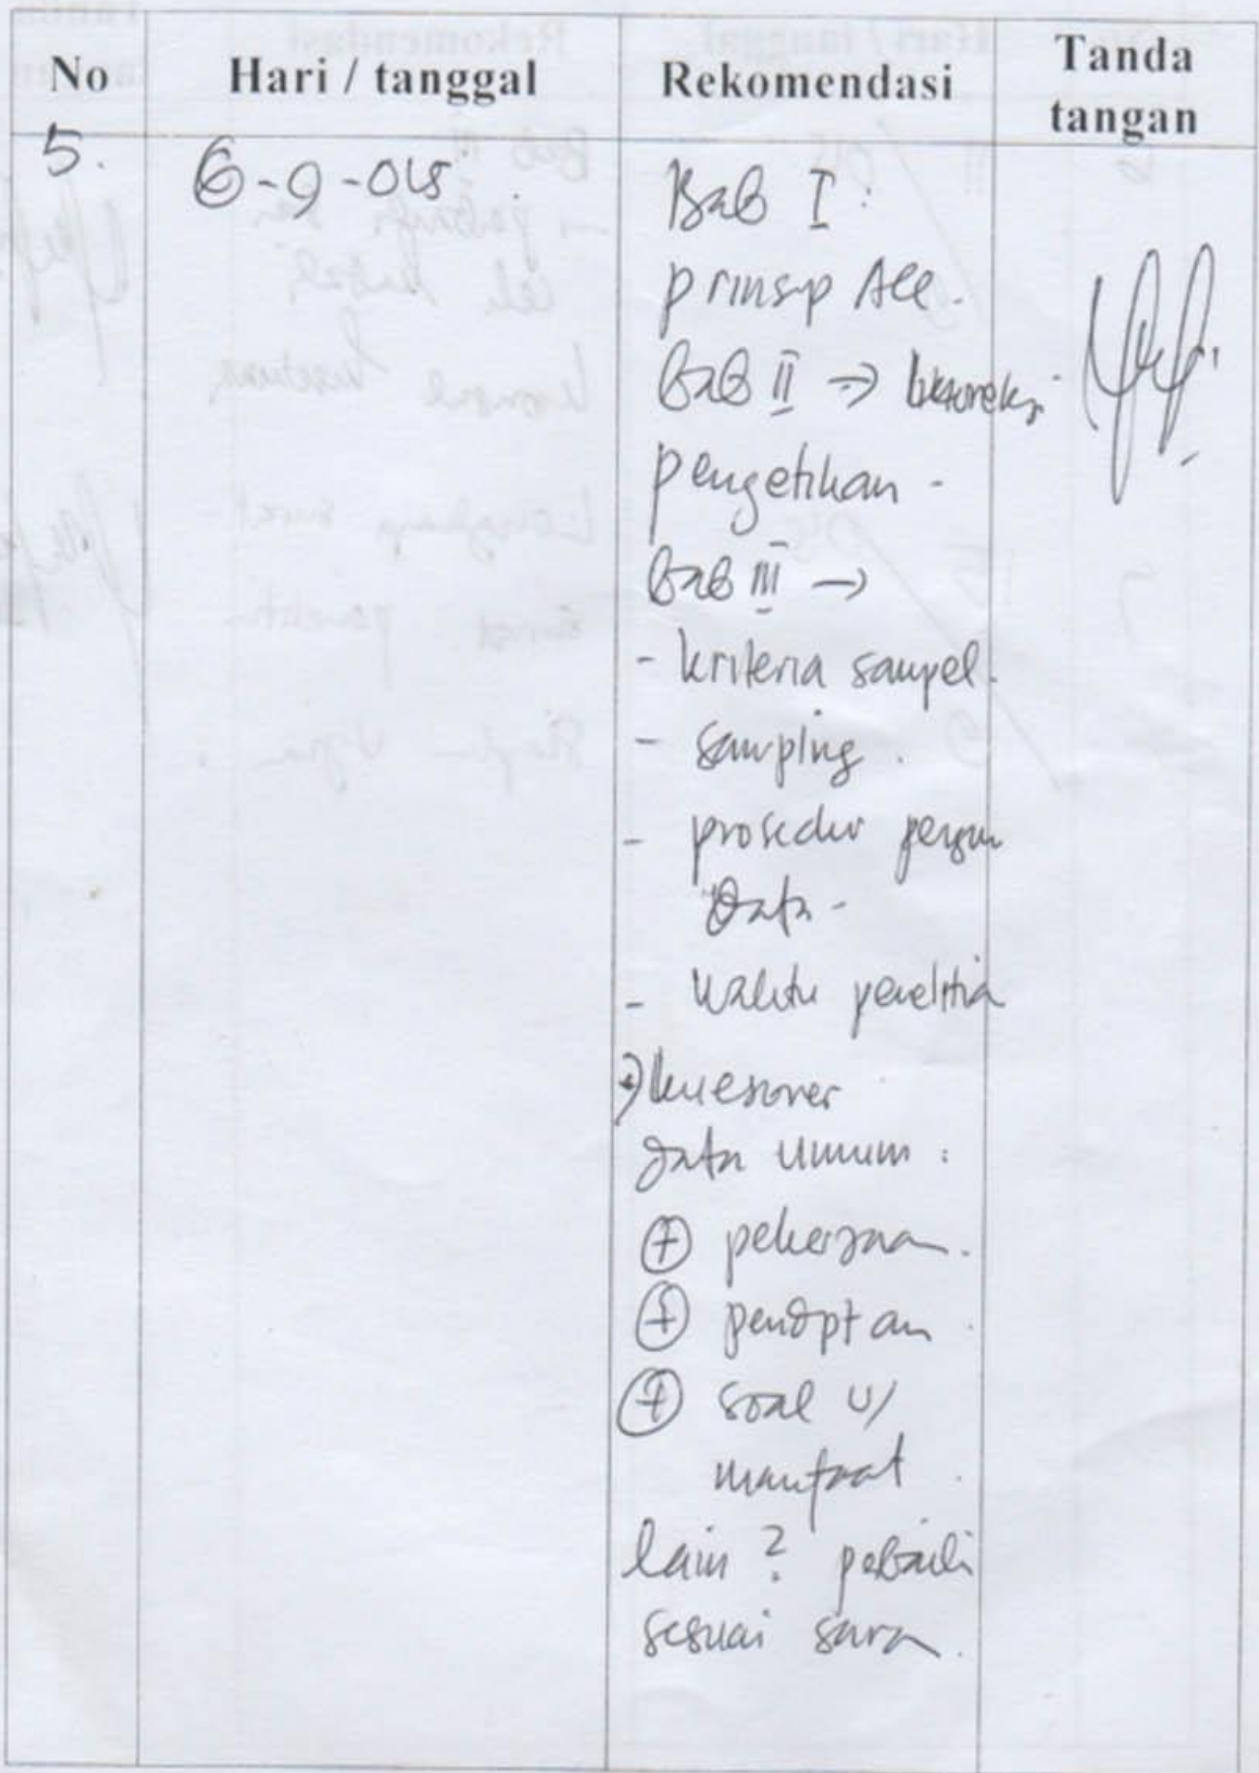 No Hari / tanggal Rekomendasi Tanda tangan
5. 6-9-015
Bab I :
prinsip Acc.
Bab II →
pengetikan -
Bab III →
- kriteria sampel.
- sampling.
- prosedur
Data -
- waktu penelitia
kuesioner
Data umum :
+ pekerjaan.
+
+ soal u/
manfaat
lain ?
sesuai saran.